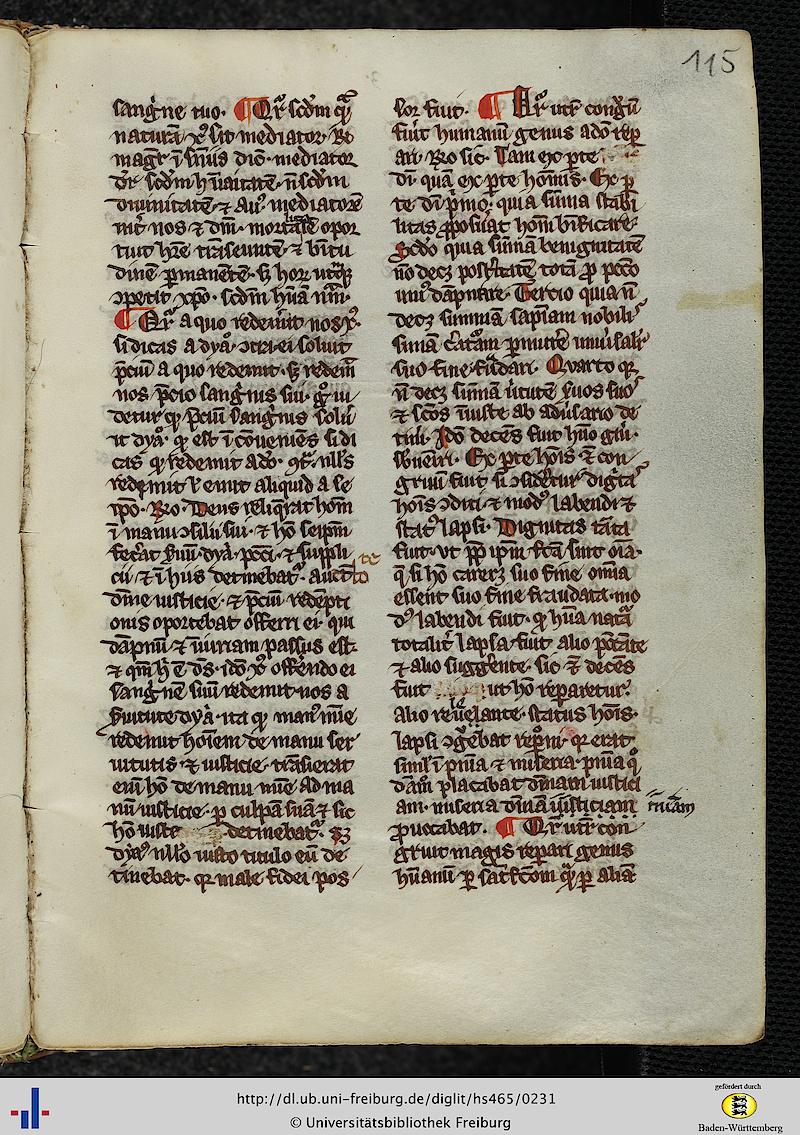 115
sangͥne tuo. ¶ Qr̄ scdm̄ qᷓ
naturā xp̄s sit mediator. Re
magr̄ ī sn̄iis dic̄. mediator
dr̄ scdm̄ hūaītatē. n̄ scdm̄
diuinitatē. ⁊ Au᷒. mediatorē
int̄ nos ⁊ dm̄. mortalē opor
tuit hr̄e trāseuntē. ⁊ bt̄itu
dinē ꝑmanētē. sꝫ hor̄ utrūqꝫ
ꝯpetit xp̄o. scdm̄ hūā nām̄.
¶ Qr̄ a quo redemit nos xp̄s.
si dicas a dyā. ꝯtͣ. ei soluit
p̄ciū a quo redemit. sꝫ redem̄
nos. p̄cio sangͥnis sui. gͦ ui
detur qͥ p̄ciū sangͥnis solu
it dyā. qͥ est īcōueniēs. si di
cas qͥ redemit a dō. ꝯͣ. null᷒s
redemit ł emit aliquid a se
ip̄o. Rō. Deus reliqͥrat hom̄
ī manu ꝯsilii sui. ⁊ hō seip̄m
fec̄at s̄uū dyā. pcc̄i. ⁊ suppli
cii. ⁊ ī hiis detinebatᷣ. auctͭe
to
dīne iusticie. ⁊ p̄ciū redēpti
onis oportebat offerri ei. qui
dāpnū ⁊ iniuriam passus est.
⁊ qm̄ h̄ ē ds̄. idō xp̄s offerendo ei
sangͥnē suū redemit nos a
s̄uitute dyā. ita qͥ man᷒ īnūe
redemit hoīem de manu ser
uitutis. ⁊ iusticie. trāsierat
enī hō de manu īnūe ad ma
nū iusticie. ꝑ culpā suā. ⁊ sic
hō iuste detinebatᷣ. sꝫ
dya᷒ nullo iusto titulo eū de
tinebat. qͥ male fidei pos
sor fuit. ¶ Qr̄ utͬ congͬū
fuit humanū genus a dō rep
ari. Rō sic. Tam ex pte
di. quā ex pte hom̄is. Ex p
te di pͥmo. quia sūma stabi
litas ꝓposuāt hom̄ bīficare.
Scdō quia sūmā benignitatē
nō decꝫ postītatē totā ꝓ pcc̄o
uni᷒ dāpnare. Tercio quia n̄
decꝫ sūmam sapīam nobili
simā cͬatᷓm ꝑmitte͛ uniu͛sali
suo fine fͬudari. Quarto qͥ
n̄ decꝫ sūmā u͛tutē s̄uos suo᷒
⁊ scōs iniuste ab adu͛sario de
tini. Idō decēs fuit hūo gn̄i.
sb̄ueniri. Ex pte hoīs. ⁊ con
gruū fuit. si ꝯsideretᷣ digͭta
hoīs ꝯditi. ⁊ mod᷒ labendi ⁊
stat᷒ lapsi. Dignitas tāta
fuit. ut ꝓp ip̄m fc̄a sint oīa.
qͥ si hō careretꝫ suo fine. omīa
essent suo fine fraudata. mo
d᷒ labendi fuit. qͥ hūa natᷓ
totalit̄ lapsa fuit alio portāte
⁊ alio suggͬente. sic ⁊ decēs
fuit ut hō repararetur.
Alio reuelante. status hoīs.
lapsi ꝯgͬebat rep̄oni. qͥ erat
simul ī pn̄ia ⁊ miseria. pn̄ia qͥ
dām placabat dīnam iustici
am. miseria dīnā iusticiam
mīam
ꝓuocabat. ¶ Qr̄ utͬ con
gruit magis repari genus
hūanū ꝑ satͥfc̄om qᷓ ꝑ aliā
http://dl.ub.uni-freiburg.de/diglit/hs465/0231
© Universitätsbibliothek Freiburg
gefördert durch
Baden-Württemberg